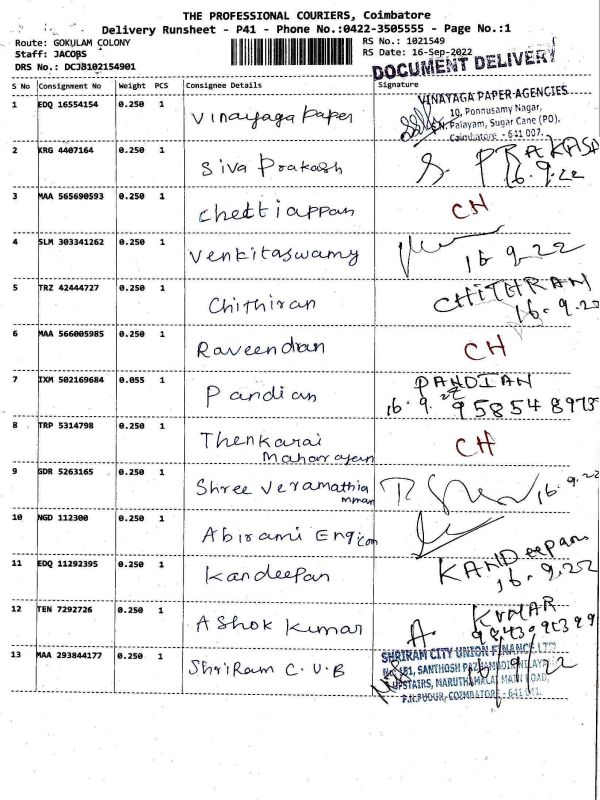 THE PROFESSIONAL COURIERS, Coimbatore
Delivery Runsheet - P41 - Phone No.:0422-3505555 - Page No.:1
Route: GOKULAM COLONY RS No.: 1021549
Staff: JACOBS RS Date: 16-Sep-2022
DRS No.: DCJB102154901 DOCUMENT DELIVERY
S No Consignment No Weight PCS Consignee Details Signature
1 EDQ 16554154 0.250 1 Vinayaga Paper
VINAYAGA PAPER AGENCIES
10, Ponnusamy Nagar,
S.N. Palayam, Sugar Cane (PO),
Coimbatore - 641 007.
2 KRG 4407164 0.250 1 Siva Prakash S. PRAKASH
16.9.22
3 MAA 565690593 0.250 1 Chettiappan CH
4 SLM 303341262 0.250 1 Venkitaswamy 16 9.22
5 TRZ 42444727 0.250 1 Chithiran CHITHRAN
16.9.22
6 MAA 566005985 0.250 1 Raveendran CH
7 IXM 502169684 0.055 1 Pandian PANDIAN
16.9.22 958548973
8 TRP 5314798 0.250 1 Thenkarai CH
Maharajan
9 GDR 5263165 0.250 1 Shree Veramathia 16.9.22
mman
10 NGD 112300 0.250 1 Abirami Engicon
11 EDQ 11292395 0.250 1 Kandeepan KANDeepan
16.9.22
12 TEN 7292726 0.250 1 AShok Kumar A. KUMAR
13 MAA 293844177 0.250 1 ShriRam C.U.B
SHRIRAM CITY UNION FINANCE LTD
16/9/22
UPSTAIRS, MARUTHAMALAI MAIN ROAD,
P.N.PUDUR, COIMBATORE - 641 041.